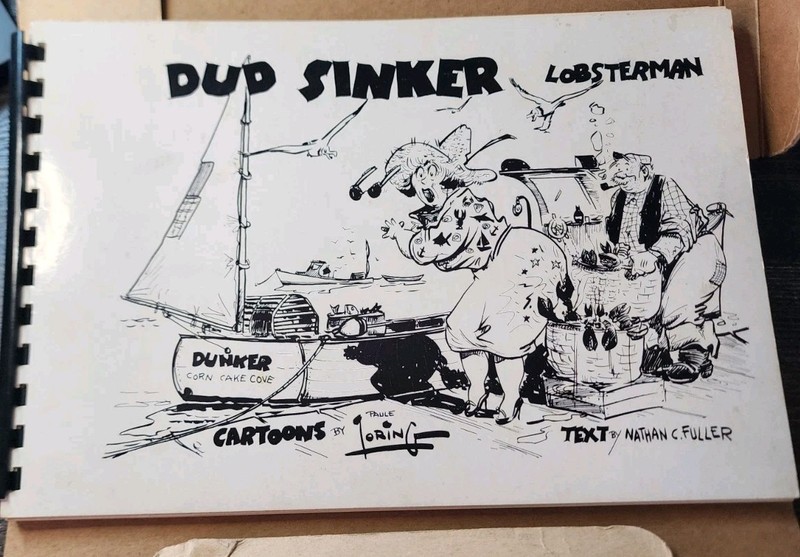 DUD SINKER LOBSTERMAN
DUNKER
CORN CAKE COVE
CARTOONS BY "PAULE" LORING
TEXT By NATHAN C. FULLER